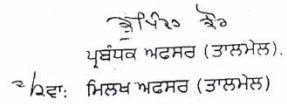 ਪ੍ਰਬੰਧਕ ਅਫਸਰ (ਤਾਲਮੇਲ).
ਵਾ: ਮਿਲਖ ਅਫਸਰ (ਤਾਲਮੇਲ)